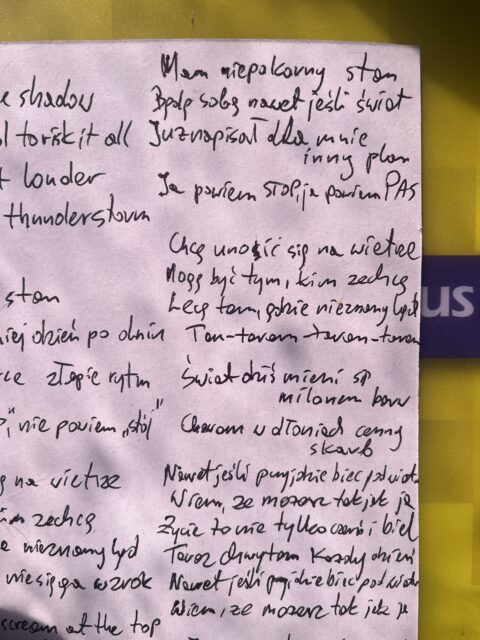 e shadow
to risk it all
louder
thunderstorm
stan
niej dzień po dniu
ce złapie rytm
nie powiem „stój"
na wietrze
im zechcę
nieznany ląd
nie sięga wzrok
scream at the top
Mam niepokorny stan
sobą nawet jeśli świat
Już napisał dla mnie
inny plan
Ja powiem STOP, ja powiem PAS
Chcę unosić się na wietrze
Mogę być tym, kim zechcę
Lecę tam, gdzie nieznany ląd
Tam-taram-taram-taram
Świat dziś mieni się
milionem barw
Chowam w dłoniach cenny
skarb
Nawet jeśli przyjdzie biec pod wiatr
Wiem, że możesz tak jak ja
Życie to nie tylko czerń i biel
Teraz chwytam każdy dzień
Nawet jeśli przyjdzie biec pod wiatr
Wiem, że możesz tak jak ja
us